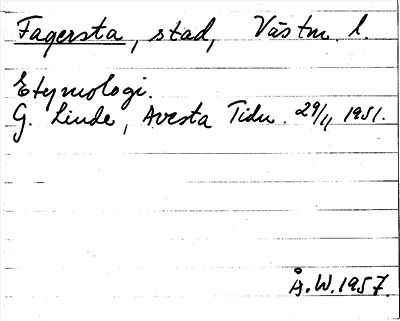 Fagersta, stad, Västm. l.
Etymologi.
G. Linde, Avesta Tidn. 29/11 1951.
Å.W. 1957.